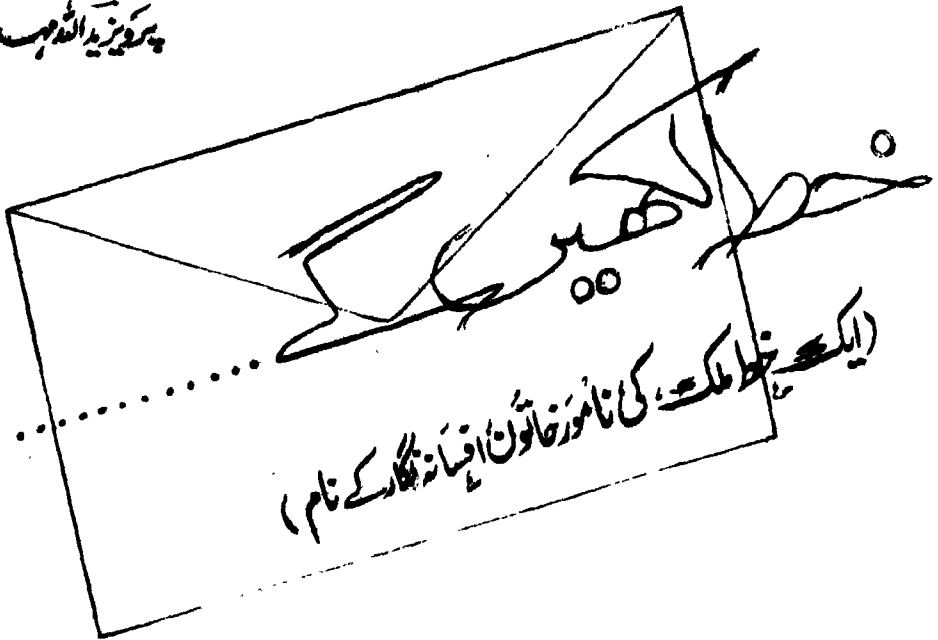 پرویز یداللہ
خط لکھیں گے ..............
(ایک خط ملک کی نامور خاتون افسانہ نگار کے نام)